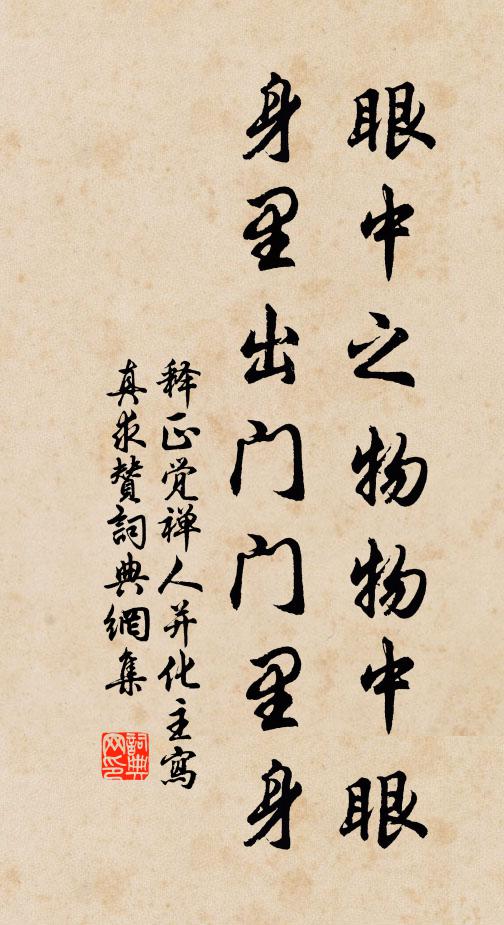 眼中之物物中眼
身里出门门里身
释正觉禅人并化主寫
真求赞詞典網集
詞典网印